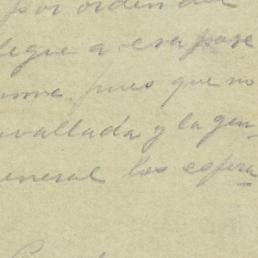 por orden del
llegue a esa pase
pues que no
avallada y la gen
eneral los espera